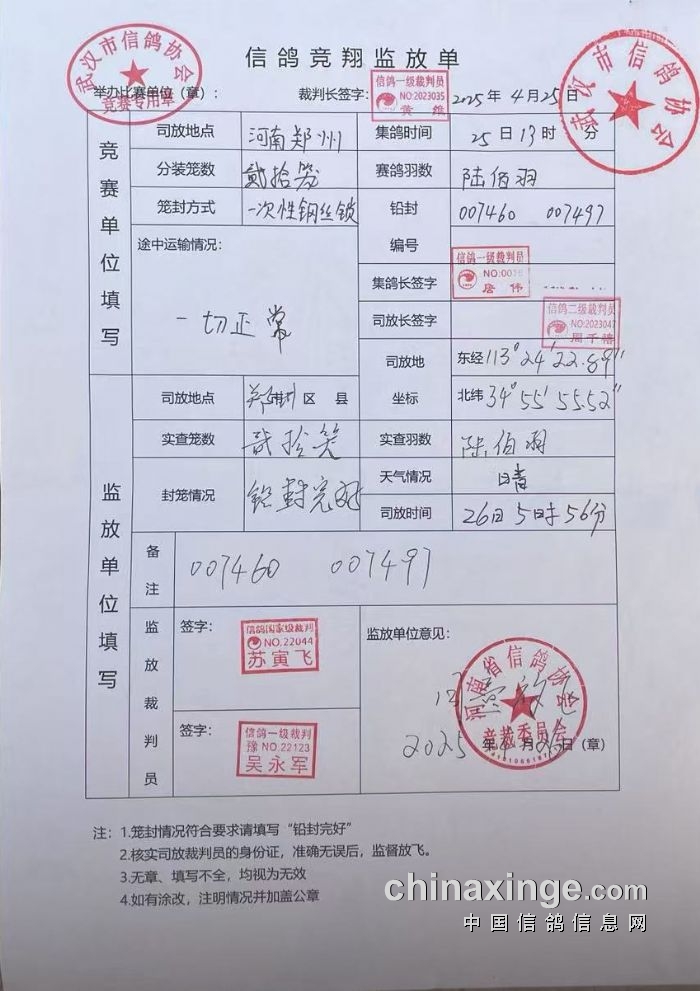 信鸽竞翔监放单
武汉市信鸽协会
竞赛专用章
武汉市信鸽协会
举办比赛单位（章）：
裁判长签字：
信鸽一级裁判员
NO:2023035
黄 维
2025 年 4 月 25 日
竞赛单位填写
司放地点 河南郑州 集鸽时间 25 日 13 时 分
分装笼数 贰拾笼 赛鸽羽数 陆佰羽
笼封方式 一次性钢丝锁 铅封 007460 007497
途中运输情况： 编号
一切正常
集鸽长签字
信鸽一级裁判员
唐 伟
司放长签字
信鸽二级裁判员
NO:2023047
周千禧
司放地 东经 113°24′22.89″
坐标 北纬 34°55′55.52″
监放单位填写
司放地点 区 县
实查笼数 贰拾笼 实查羽数 陆佰羽
封笼情况 铅封完好 天气情况 晴
司放时间 26日5时56分
备注 007460 007497
监放裁判员
签字：
信鸽国家级裁判
NO.22044
苏寅飞
签字：
信鸽一级裁判
豫NO.22123
吴永军
监放单位意见：
同意放飞
河南省信鸽协会
竞裁委员会
2025 年 月 日（章）
注：1.笼封情况符合要求请填写“铅封完好”
2.核实司放裁判员的身份证，准确无误后，监督放飞。
3.无章、填写不全，均视为无效
4.如有涂改，注明情况并加盖公章
chinaxinge.com
中国信鸽信息网